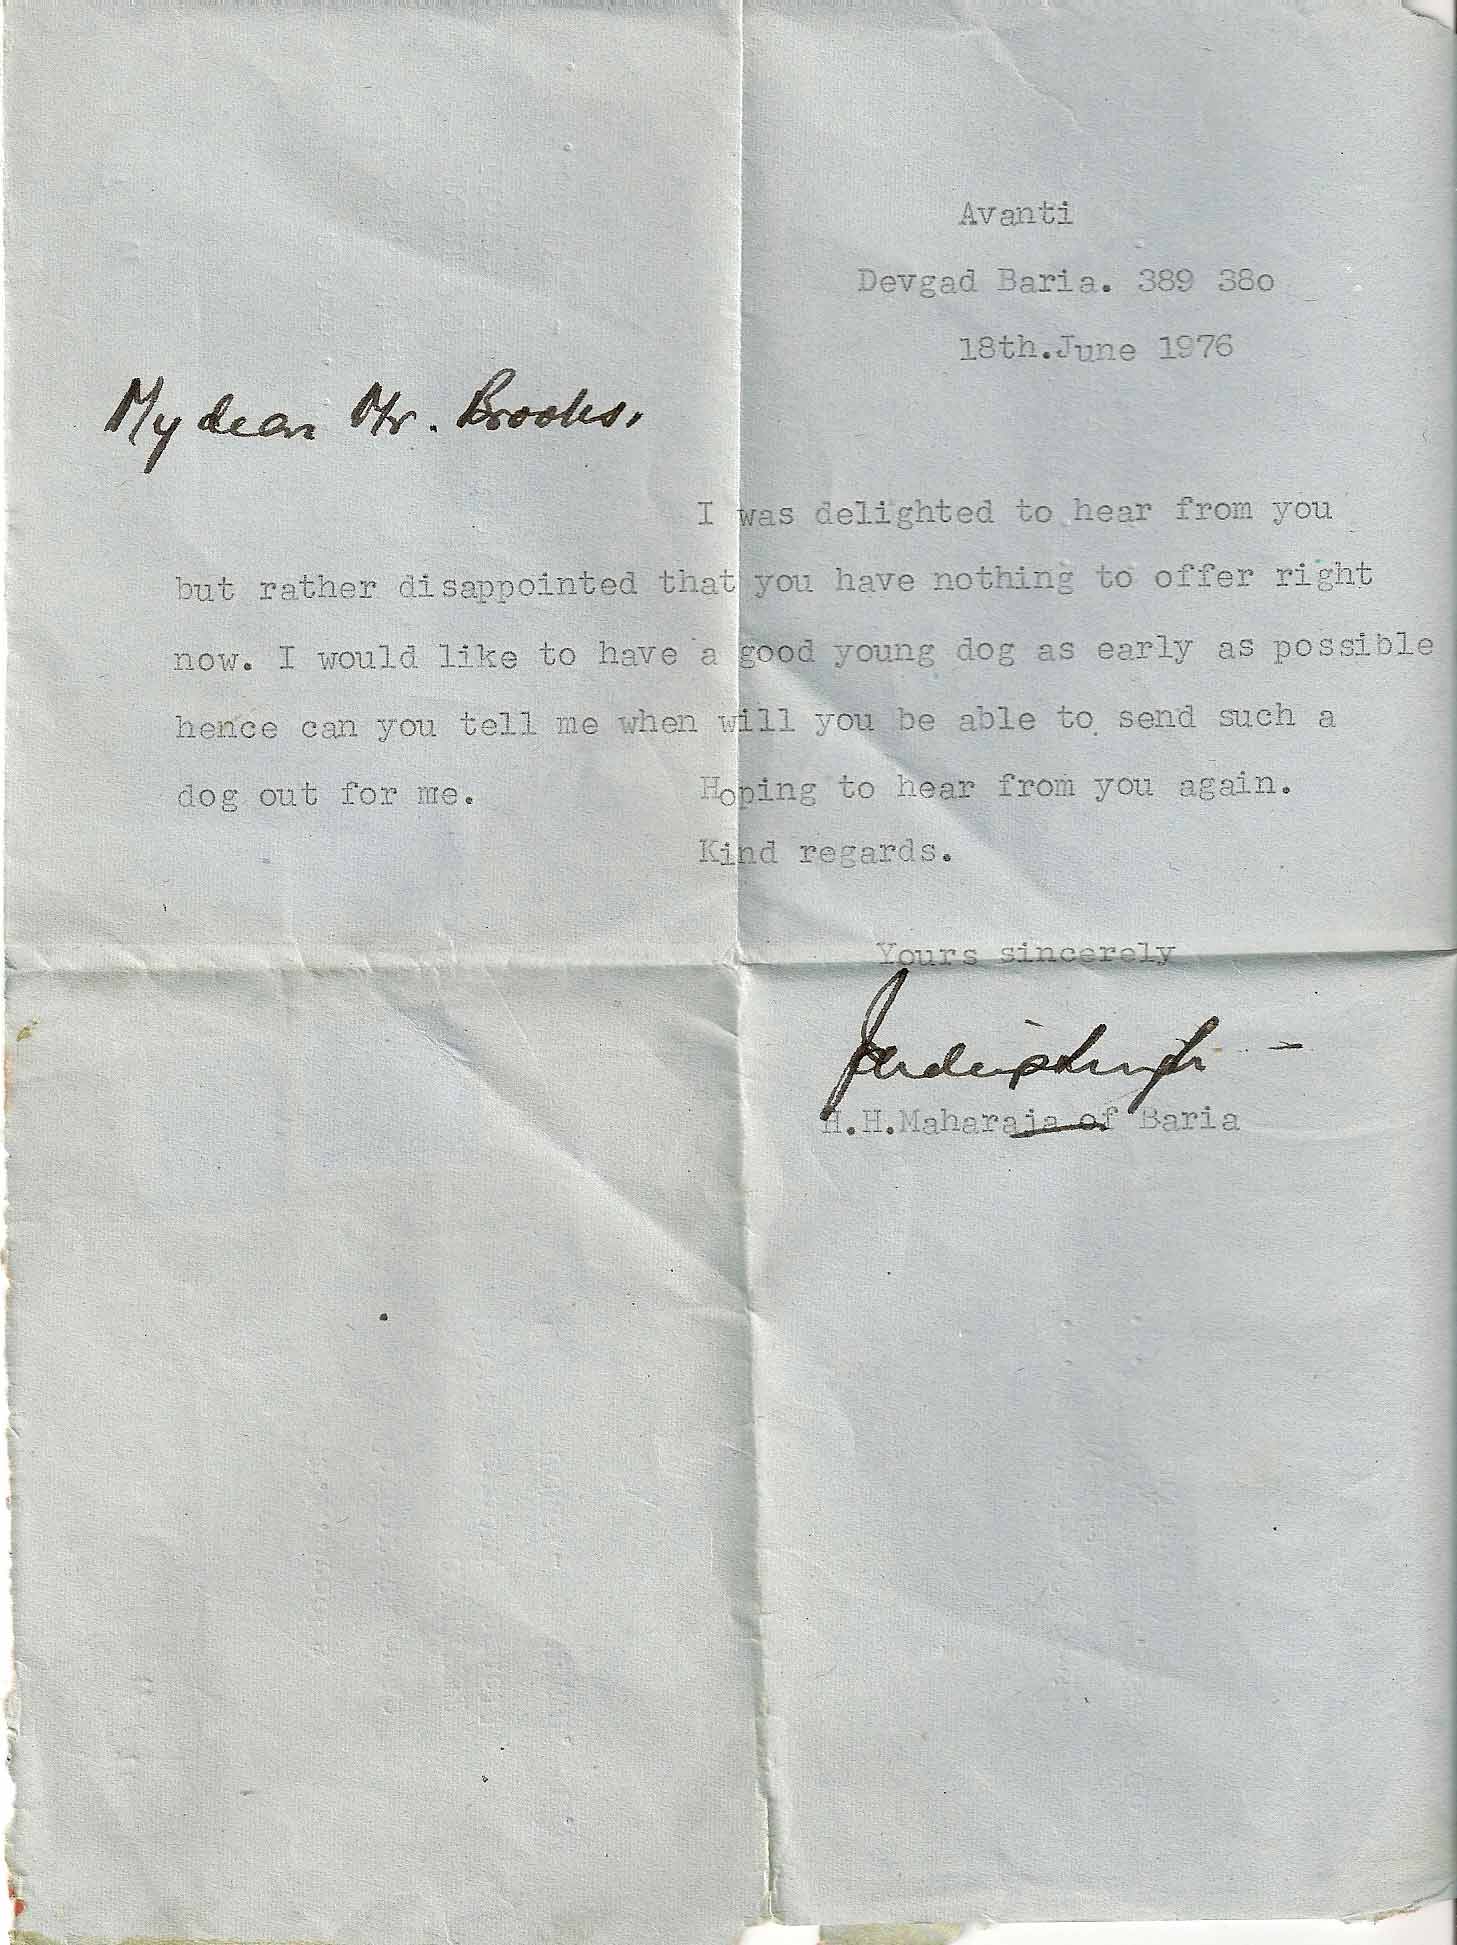 Avanti
Devgad Baria. 389 38o
18th.June 1976
My dear Mr. Brooks,
I was delighted to hear from you
but rather disappointed that you have nothing to offer right
now. I would like to have a good young dog as early as possible
hence can you tell me when will you be able to send such a
dog out for me. Hoping to hear from you again.
Kind regards.
Yours sincerely
Jaideipsingh
H.H.Maharaja of Baria